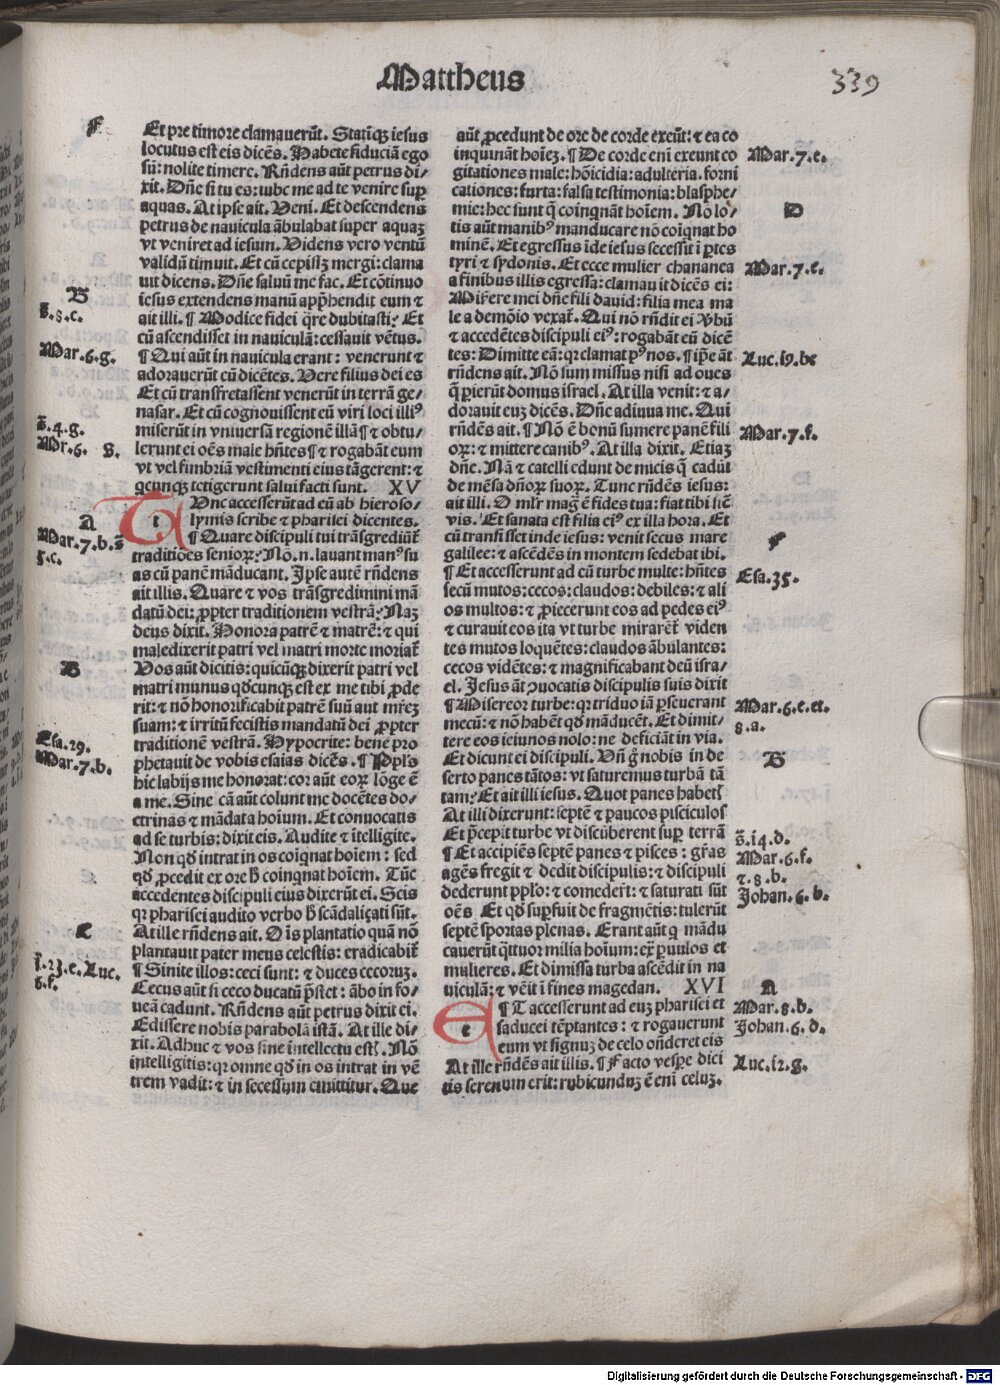 Mattheus
339
F
Et pre timore clamauerūt. Statimqꝫ iesus
locutus est eis dicēs. Habete fiduciā ego
sū: nolite timere. Rñdens aūt petrus di⸗
xit. Dñe si tu es: iube me ad te venire suꝑ
aquas. At ipse ait. Veni. Et descendens
petrus de nauicula ābulabat super aquaꝫ
vt veniret ad iesum. Videns vero ventū
validū timuit. Et cū cepissꝫ mergi: clama
uit dicens. Dñe saluū me fac. Et cōtinuo
iesus extendens manū apprehendit eum ⁊
ait illi. ¶ Modice fidei q̄re dubitasti? Et
cū ascendisset in nauiculā: cessauit vētus.
¶ Qui aūt in nauicula erant: venerunt ⁊
adorauerūt cū dicētes. Vere filius dei es
Et cū transfretassent venerūt in terrā ge⸗
nasar. Et cū cognouissent eū viri loci illiꝰ
miserūt in vniuersā regionē illā ¶ ⁊ obtu⸗
lerunt ei oēs male hñtes ¶ ⁊ rogabāt eum
vt vel fimbriā vestimenti eius tāgerent: ⁊
qcunqꝫ tetigerunt salui facti sunt. XV
B
S. 8. c.
Mar. 6. g.
S. 4. g.
Mr. 6. S.
Tunc accesserūt ad eū ab hieroso⸗
lymis scribe ⁊ pharisei dicentes.
¶ Quare discipuli tui trāsgrediūt᷑
traditiões senioꝝ? Nō. n. lauant manꝰ su
as cū panē māducant. Ipse autē rñdens
ait illis. Quare ⁊ vos trāsgredimini mā
datū dei: ꝓpter traditionem vestrā? Naꝫ
deus dixit. Honora patrē ⁊ matrē: ⁊ qui
maledixerit patri vel matri morte moriat᷑
Vos aūt dicitis: quicūqꝫ dixerit patri vel
matri munus qdcunqꝫ est ex me tibi ꝓde
rit: ⁊ nō honorificabit patrē suū aut mr̄eꝫ
suam: ⁊ irritū fecistis mandatū dei ꝓpter
traditionē vestrā. Hypocrite: bene pro
phetauit de vobis esaias dicēs. ¶ Ppl̄s
hic labijs me honorat: cor aūt eoꝝ lōge ē
a me. Sine cā aūt colunt me docētes do⸗
ctrinas ⁊ mādata hoium. Et conuocatis
ad se turbis: dixit eis. Audite ⁊ ītelligite.
Non qd intrat in os coiqnat hoiem: sed
qd ꝓcedit ex ore h̄ coinqnat hoīem. Tūc
accedentes discipuli eius dixerūt ei. Scis
qꝛ pharisei audito verbo h̄ scādaliçati sūt.
At ille rñdens ait. Oīs plantatio quā nō
plantauit pater meus celestis: eradicabit᷑
¶ Sinite illos: ceci sunt: ⁊ duces cecoruꝫ.
Cecus aūt si ceco ducatū p̄stet: ābo in fo⸗
ueā cadunt. Rñdens aūt petrus dixit ei.
Edissere nobis parabolā istā. At ille di⸗
xit. Adhuc ⁊ vos sine intellectu estꝭ. Nō
intelligitis: qꝛ omne qd in os intrat in vē
trem vadit: ⁊ in secessum emittitur. Que
A
Mar. 7. b. S̄
5. c.
B
Esa. 29.
Mar. 7. b.
C
S̄. 23. c. Luc.
6. f.
aūt ꝓcedunt de ore de corde exeūt: ⁊ ea co
inquināt hoīeꝫ. ¶ De corde enī exeunt co
gitationes male: hōicidia: adulteria. forni
cationes: furta: falsa testimonia: blasphe⸗
mie: hec sunt q̄ coīngnāt hoīem. No lo⸗
tis aūt manibꝰ manducare nō coiq̄nat ho
minē. Et egressus īde iesus secessit ī ꝑtes
tyri ⁊ sydonis. Et ecce mulier chananea
a finibus illis egressa: clamauit dicēs ei:
Mirere mei dñe fili dauid: filia mea ma
le a demōio vexat᷑. Qui nō rñdit ei ꝟbū
⁊ accedētes discipuli eiꝰ: rogabāt eū dicē
tes: Dimitte eā: qꝛ clamat pꝰ nos. ¶ ip̄e āt
rñdens ait. Nō sum missus nisi ad oues
q̄ pierūt domus israel. At illa venit: ⁊ a⸗
dorauit euꝫ dicēs. Dñe adiuua me. Qui
rñdēs ait. ¶ Nō ē bonū sumere panē fili
oꝝ: ⁊ mittere canibꝰ. At illa dixit. Etiaꝫ
dñe. Nā ⁊ catelli edunt de micis q̄ cadūt
de mēsa dñoꝝ suoꝝ. Tunc rñdēs iesus:
ait illi. O ml̄r maḡ ē fides tua: fiat tibi sic̄
vis. Et sanata est filia eiꝰ ex illa hora. Et
cū transisset inde iesus: venit secus mare
galilee: ⁊ ascēdēs in montem sedebat ibi.
¶ Et accesserunt ad eū turbe multe: hñtes
secū mutos: cecos: claudos: debiles: ⁊ ali
os multos: ⁊ ꝓiecerunt eos ad pedes eiꝰ
⁊ curauit eos ita vt turbe mirarēt᷑ viden
tes mutos loquētes: claudos ābulantes:
cecos vidētes: ⁊ magnificabant deū isra⸗
el. Jesus āt ꝯuocatis discipulis suis dixit
¶ Misereor turbe: qꝛ triduo iā ꝑseuerant
mecū: ⁊ nō habēt qd māducēt. Et dimit⸗
tere eos ieiunos nolo: ne deficiāt in via.
Et dicunt ei discipuli. Vñ g̊ nobis in de
serto panes tātos: vt saturemus turbā tā
tam? Et ait illi iesus. Quot panes habetꝭ
At illi dixerunt: septē ⁊ paucos pisciculos
Et p̄cepit turbe vt discūberent suꝑ terrā
¶ Et accipiēs septē panes ⁊ pisces: gr̄as
agēs fregit ⁊ dedit discipulis: ⁊ discipuli
dederunt ppl̄o: ⁊ comederūt: ⁊ saturati sūt
oēs. Et qd suꝑfuit de fragmētis: tulerūt
septē sportas plenas. Erant aūt q̄ mādu
cauerūt q̄ttuor milia hoīum: ex̄ ꝑuulos et
mulieres. Et dimissa turba ascēdit in na
uiculā: ⁊ vēit ī fines magedan. XVI
ET accesserunt ad euꝫ pharisei et
saducei tēptantes: ⁊ rogauerunt
eum vt signuꝫ de celo oñderet eis
At ille rñdēs ait illis. ¶ Facto vesꝑe dici
tis serenum erit: rubicunduꝫ ē enī celuꝫ.
Mar. 7. e.
D
Mar. 7. e.
Luc. 19. be
Mar. 7. f.
F
Esa. 35.
Mar. 6. e. et.
8. a.
B
S̄. 14. d.
Mar. 6. f.
⁊. 8. b.
Johan. 6. b.
A
Mar. 8. b.
Johan. 6. d.
Luc. 12. g.
Digitalisierung gefördert durch die Deutsche Forschungsgemeinschaft - DFG